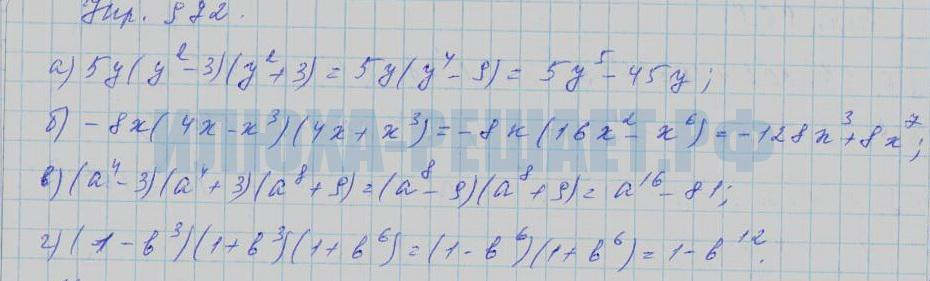 Упр. 972.
а) 5y(y²-3)(y²+3) = 5y(y⁴-9) = 5y⁵-45y;
б) -8x(4x-x³)(4x+x³)=-8x(16x²-x⁶)=-128x³+8x⁷;
в) (a⁴-3)(a⁴+3)(a⁸+9)=(a⁸-9)(a⁸+9)=a¹⁶-81;
г) (1-b³)(1+b³)(1+b⁶)=(1-b⁶)(1+b⁶)=1-b¹².
ИЛЮХА-РЕШАЕТ.РФ